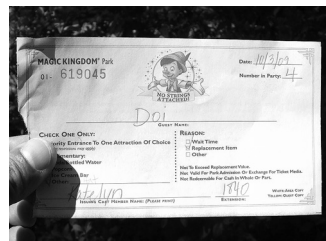 MAGIC KINGDOM® Park
01- 619045
NO STRINGS
ATTACHED!
Date: 10/3/09
Number in Party: 4
DOI
GUEST NAME:
CHECK ONE ONLY:
Priority Entrance To One Attraction Of Choice
REASON:
Wait Time
Replacement Item
Other
Bottled Water
Ice Cream Bar
Not To Exceed Replacement Value.
Not Valid For Park Admission Or Exchange For Ticket Media.
Not Redeemable For Cash In Whole Or Part.
Katelyn
1840
ISSUING CAST MEMBER NAME: (PLEASE PRINT)
EXTENSION:
WHITE-AREA COPY
YELLOW-GUEST COPY